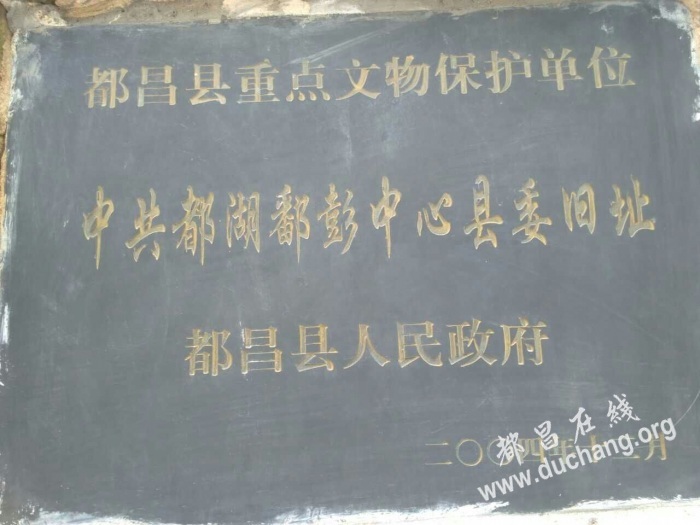 都昌县重点文物保护单位
中共都湖鄱彭中心县委旧址
都昌县人民政府
二〇〇四年十二月
都昌在线
www.duchang.org